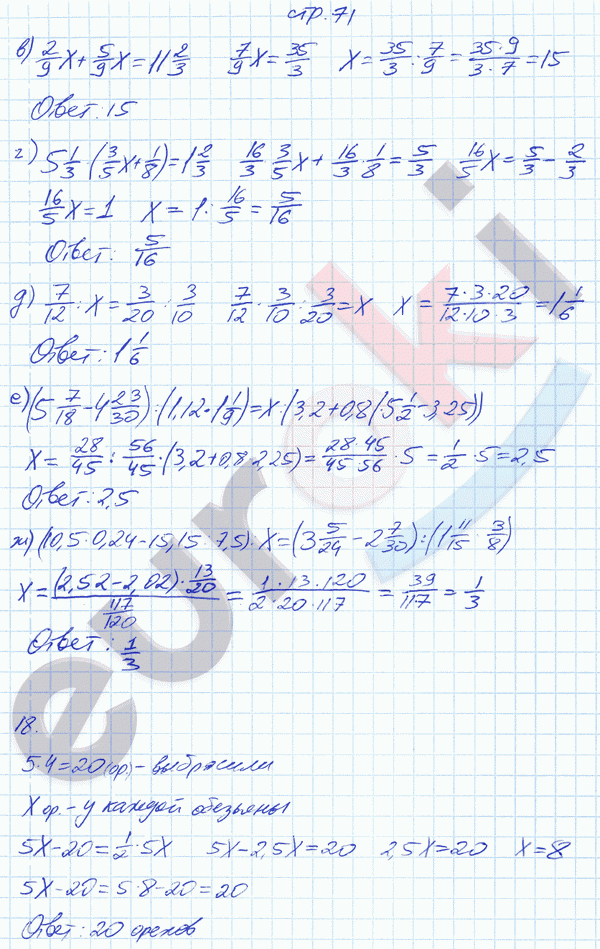 стр. 71
в) 2/9 x + 5/9 x = 11 2/3   7/9 x = 35/3   x = 35/3 : 7/9 = 35·9/3·7 = 15
Ответ: 15
г) 5 1/3 · (3/5 x + 1/8) = 1 2/3   16/3 · 3/5 x + 16/3 · 1/8 = 5/3   16/5 x = 5/3 − 2/3
16/5 x = 1   x = 1 : 16/5 = 5/16
Ответ: 5/16
д) 7/12 : x = 3/20 : 3/10   7/12 · 3/10 : 3/20 = x   x = 7·3·20/12·10·3 = 1 1/6
Ответ: 1 1/6
е) (5 7/18 − 4 23/30) : (1,12 · 1 1/9) = x : (3,2 + 0,8 (5 1/2 − 3,25))
x = 28/45 : 56/45 · (3,2 + 0,8 · 2,25) = 28·45/45·56 · 5 = 1/2 · 5 = 2,5
Ответ: 2,5
ж) (10,5 · 0,24 − 15,15 : 7,5) : x = (3 5/24 − 2 7/30) : (1 11/15 · 3/8)
x = (2,52 − 2,02) · 13/20 / 117/120 = 1·13·120/2·20·117 = 39/117 = 1/3
Ответ: 1/3
18.
5·4 = 20 (ор.) − выбросили
x ор. − у каждой обезьяны
5x − 20 = 1/2 · 5x   5x − 2,5x = 20   2,5x = 20   x = 8
5x − 20 = 5·8 − 20 = 20
Ответ: 20 орехов
euroki